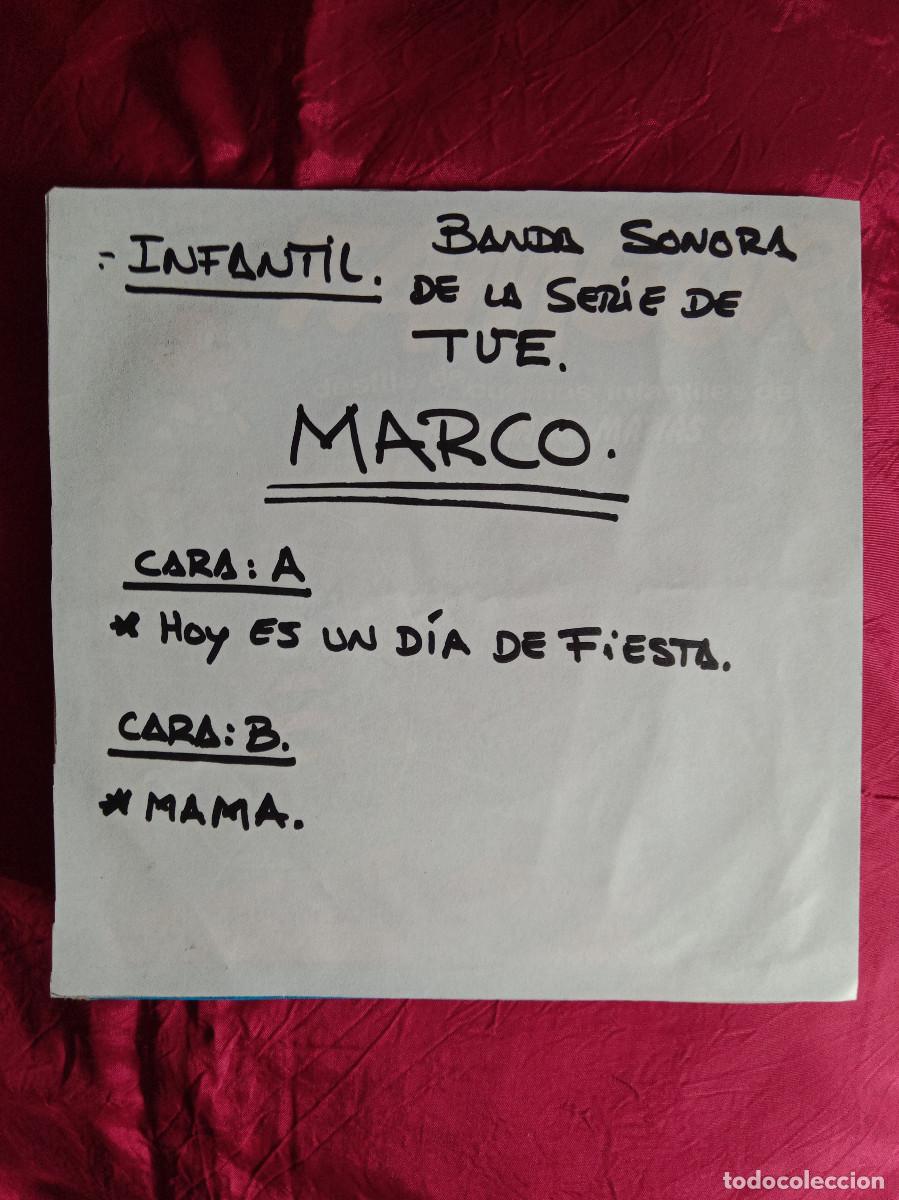 - INFANTIL. BANDA SONORA
DE LA SERIE DE
TVE.
MARCO.
CARA: A
* HOY ES UN DÍA DE FIESTA.
CARA: B.
* MAMA.
todocoleccion